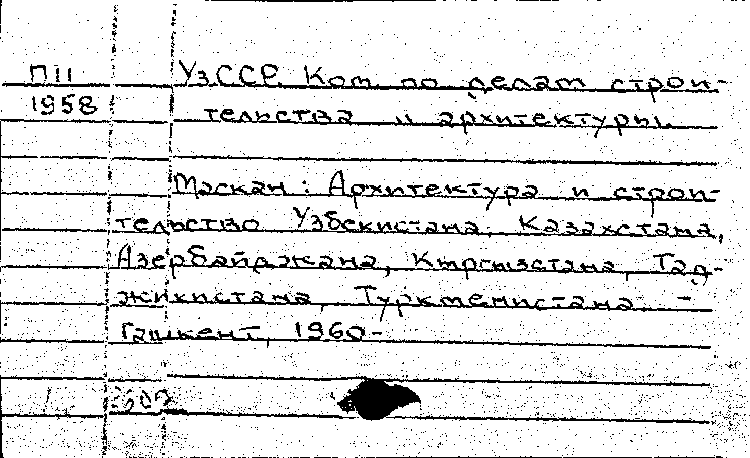 П11 УзССР. Ком. по делам строи-
1958 тельства и архитектуры.
Маскан: Архитектура и строи-
тельство Узбекистана, Казахстана,
Азербайджана, Кыргызстана, Тад-
жикистана, Туркменистана. -
Ташкент, 1960-